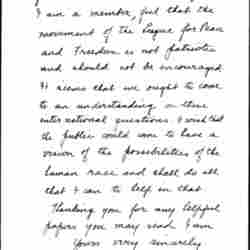 I am a member, feel that the
movement of the League for Peace
and Freedom is not patriotic
and should not be encouraged.
It seems that we ought to come
to an understanding on these
international questions. I wish that
the public could come to have a
vision of the possibilities of the
human race and shall do all
that I can to help in that.
Thanking you for any helpful
papers you may send I am
Yours very sincerely